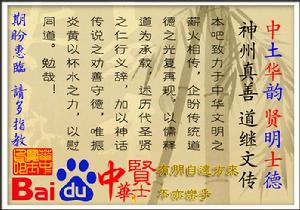 中土华韵 贤明士德
神州真善 道继文传
本吧致力于中华文明之
薪火相传，企盼传统道
德之光复再现。以儒释
道为承载，达历代圣贤
之仁行义辞，加以神话
传说之劝善守德，唯振
炎黄以杯水之力，以慰
同道。勉哉！
期盼惠临 请多指教
Bai du 中華 賢士
有朋自遠方來
不亦樂乎